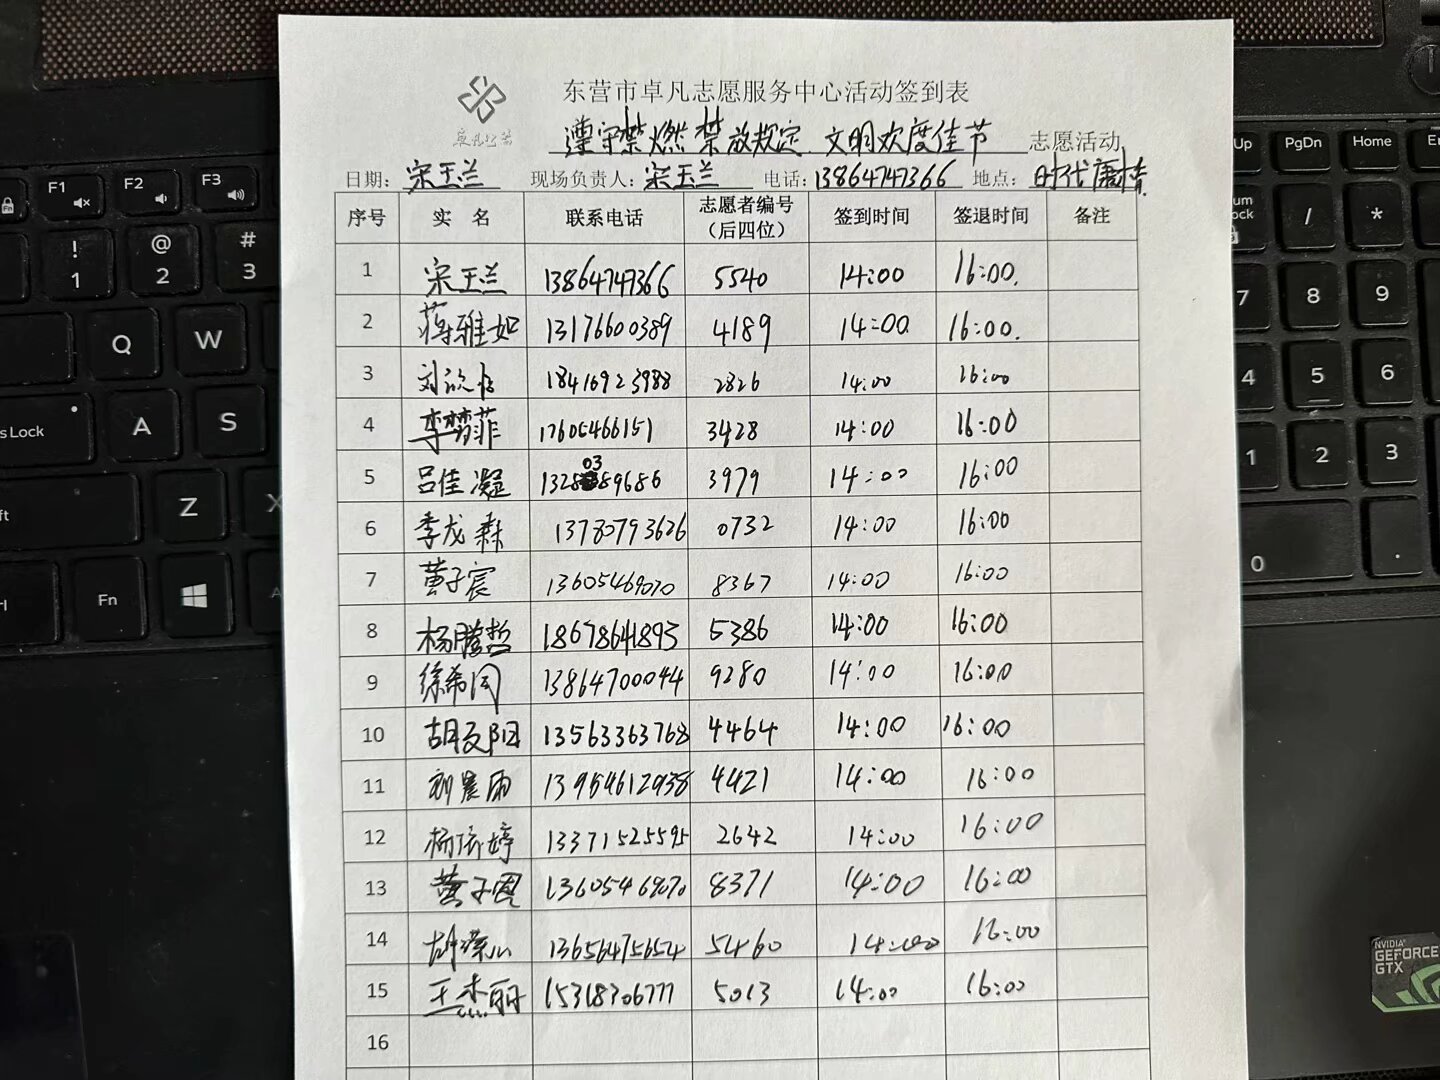 东营市卓凡志愿服务中心活动签到表
遵守禁燃禁放规定 文明欢度佳节 志愿活动
日期: 宋玉兰 现场负责人: 宋玉兰 电话: 13864747366 地点: 时代康桥
序号 实 名 联系电话 志愿者编号(后四位) 签到时间 签退时间 备注
1 宋玉兰 13864747366 5540 14:00 16:00.
2 蒋雅如 13176600389 4189 14:00 16:00.
3 刘 18416923988 2826 14:00 16:00
4 李梦菲 17605466151 3428 14:00 16:00
5 吕佳凝 13280389686 3979 14:00 16:00
6 季龙森 13780793626 0732 14:00 16:00
7 黄子宸 13605469070 8367 14:00 16:00
8 杨腾哲 18678641893 5386 14:00 16:00
9 徐希 13864700044 9280 14:00 16:00
10 胡文阳 13563363768 4464 14:00 16:00
11 刘晨雨 13964612938 4421 14:00 16:00
12 杨依婷 13371525595 2642 14:00 16:00
13 黄子 13605469070 8371 14:00 16:00
14 胡 13656475654 5460 14:00 16:00
15 王杰丽 15318306777 5013 14:00 16:00
16
F1
F2
F3
!
1
@
2
#
3
Q
W
A
S
Z
X
Fn
Up
PgDn
Home
/
*
7
8
9
4
5
6
1
2
3
0
.
NVIDIA
GEFORCE
GTX